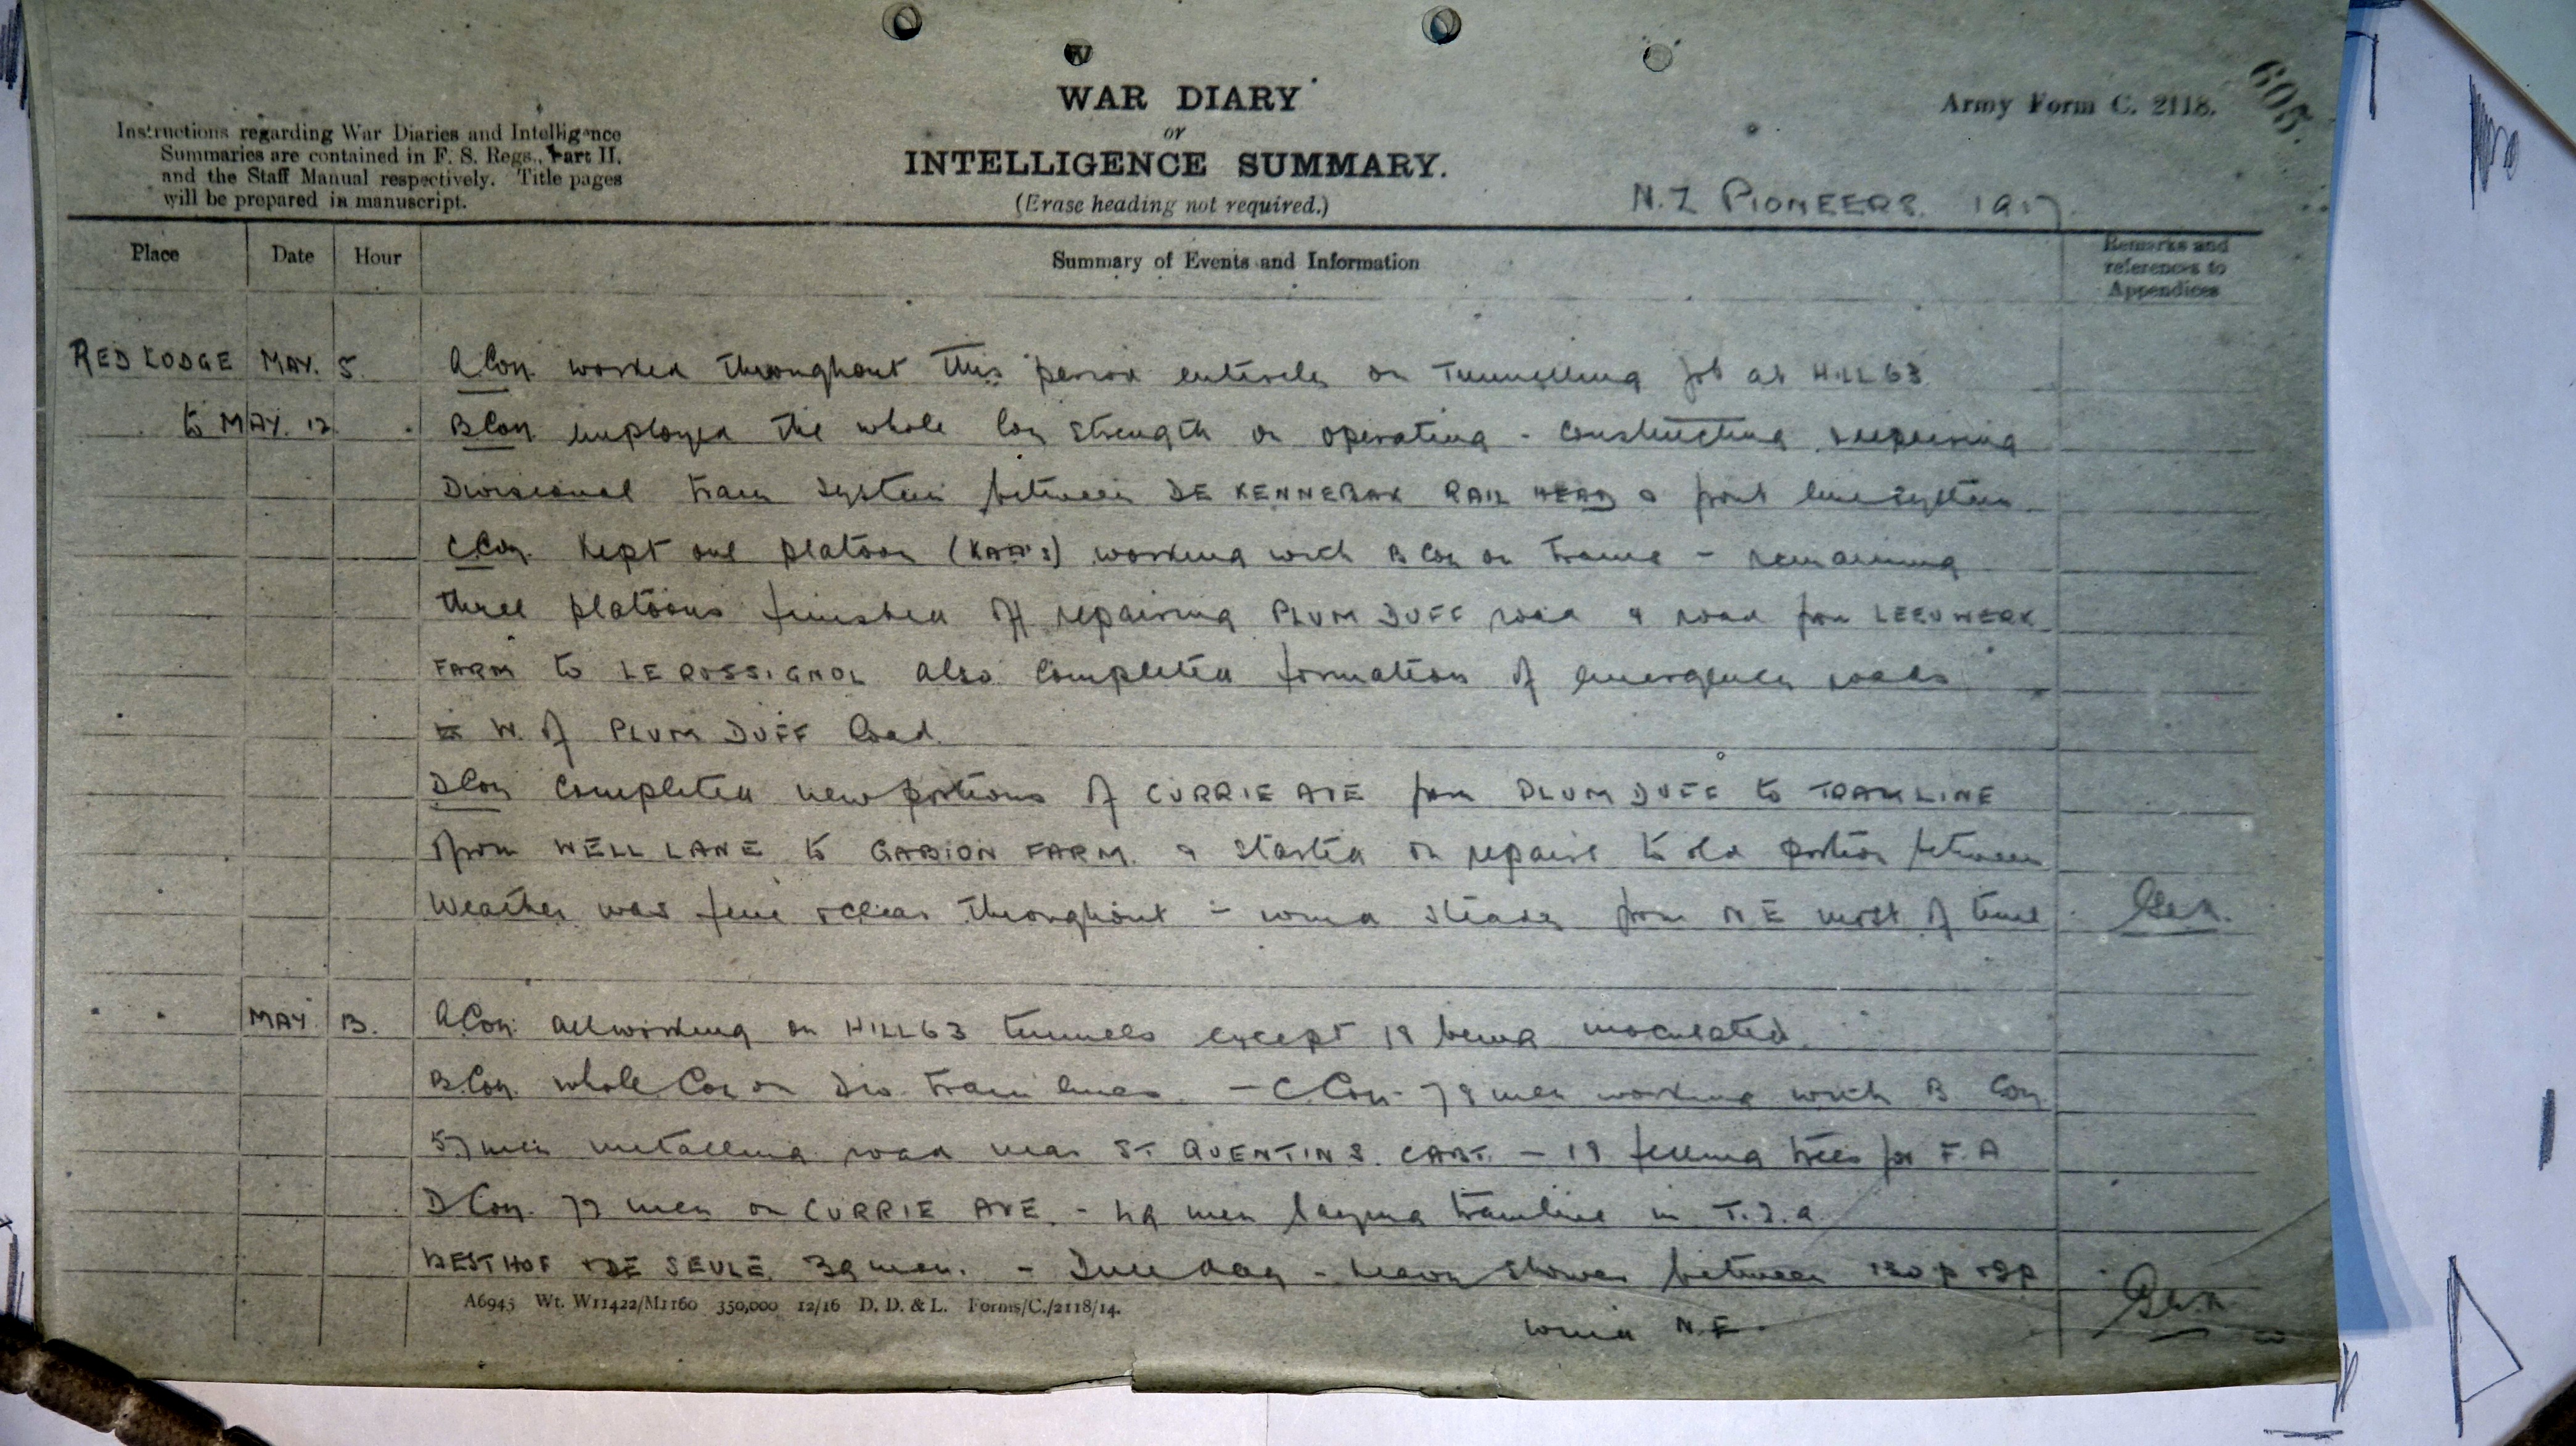 WAR DIARY
or
INTELLIGENCE SUMMARY.
(Erase heading not required.)
Army Form C. 2118.
605.
Instructions regarding War Diaries and Intelligence
Summaries are contained in F. S. Regs., Part II.
and the Staff Manual respectively. Title pages
will be prepared in manuscript.
N.Z PIONEERS. 1917.
Place Date Hour Summary of Events and Information Remarks and references to Appendices
RED LODGE MAY. 5. A Coy. worked throughout this period entirely on Tunnelling job at HILL 63.
to MAY. 12 B Coy employed the whole Coy strength on operating - constructing repairing
Divisional tram system between DE KENNEBAK RAIL HEAD & front line system.
C Coy. kept one platoon working with B Coy on trams - remaining
three platoons finished off repairing PLUM DUFF road & road from LEEUWERK
FARM to LE ROSSIGNOL also completed formation of emergency roads
W. of PLUM DUFF Road.
D Coy completed new portions of CURRIE AVE from PLUM DUFF to TRAMLINE
from WELL LANE to GABION FARM. & started on repairs to old portion between
Weather was fine & clear throughout - wind steady from N E most of time
MAY 13. A Coy. all working on HILL 63 tunnels except 18 being inoculated.
B Coy. whole Coy on Div. tram lines. - C. Coy. 78 men working with B Coy
57 men metalling road near ST QUENTINS CABT. - 18 felling trees for F. A
D Coy. 72 men on CURRIE AVE. - 49 men laying tramline in
BESTHOF & DE SEULE. 39 men. - Dull day - heavy shower between 130 p & 2 p
wind N.E.
A6945 Wt. W11422/M1160 350,000 12/16 D. D. & L. Forms/C./2118/14.